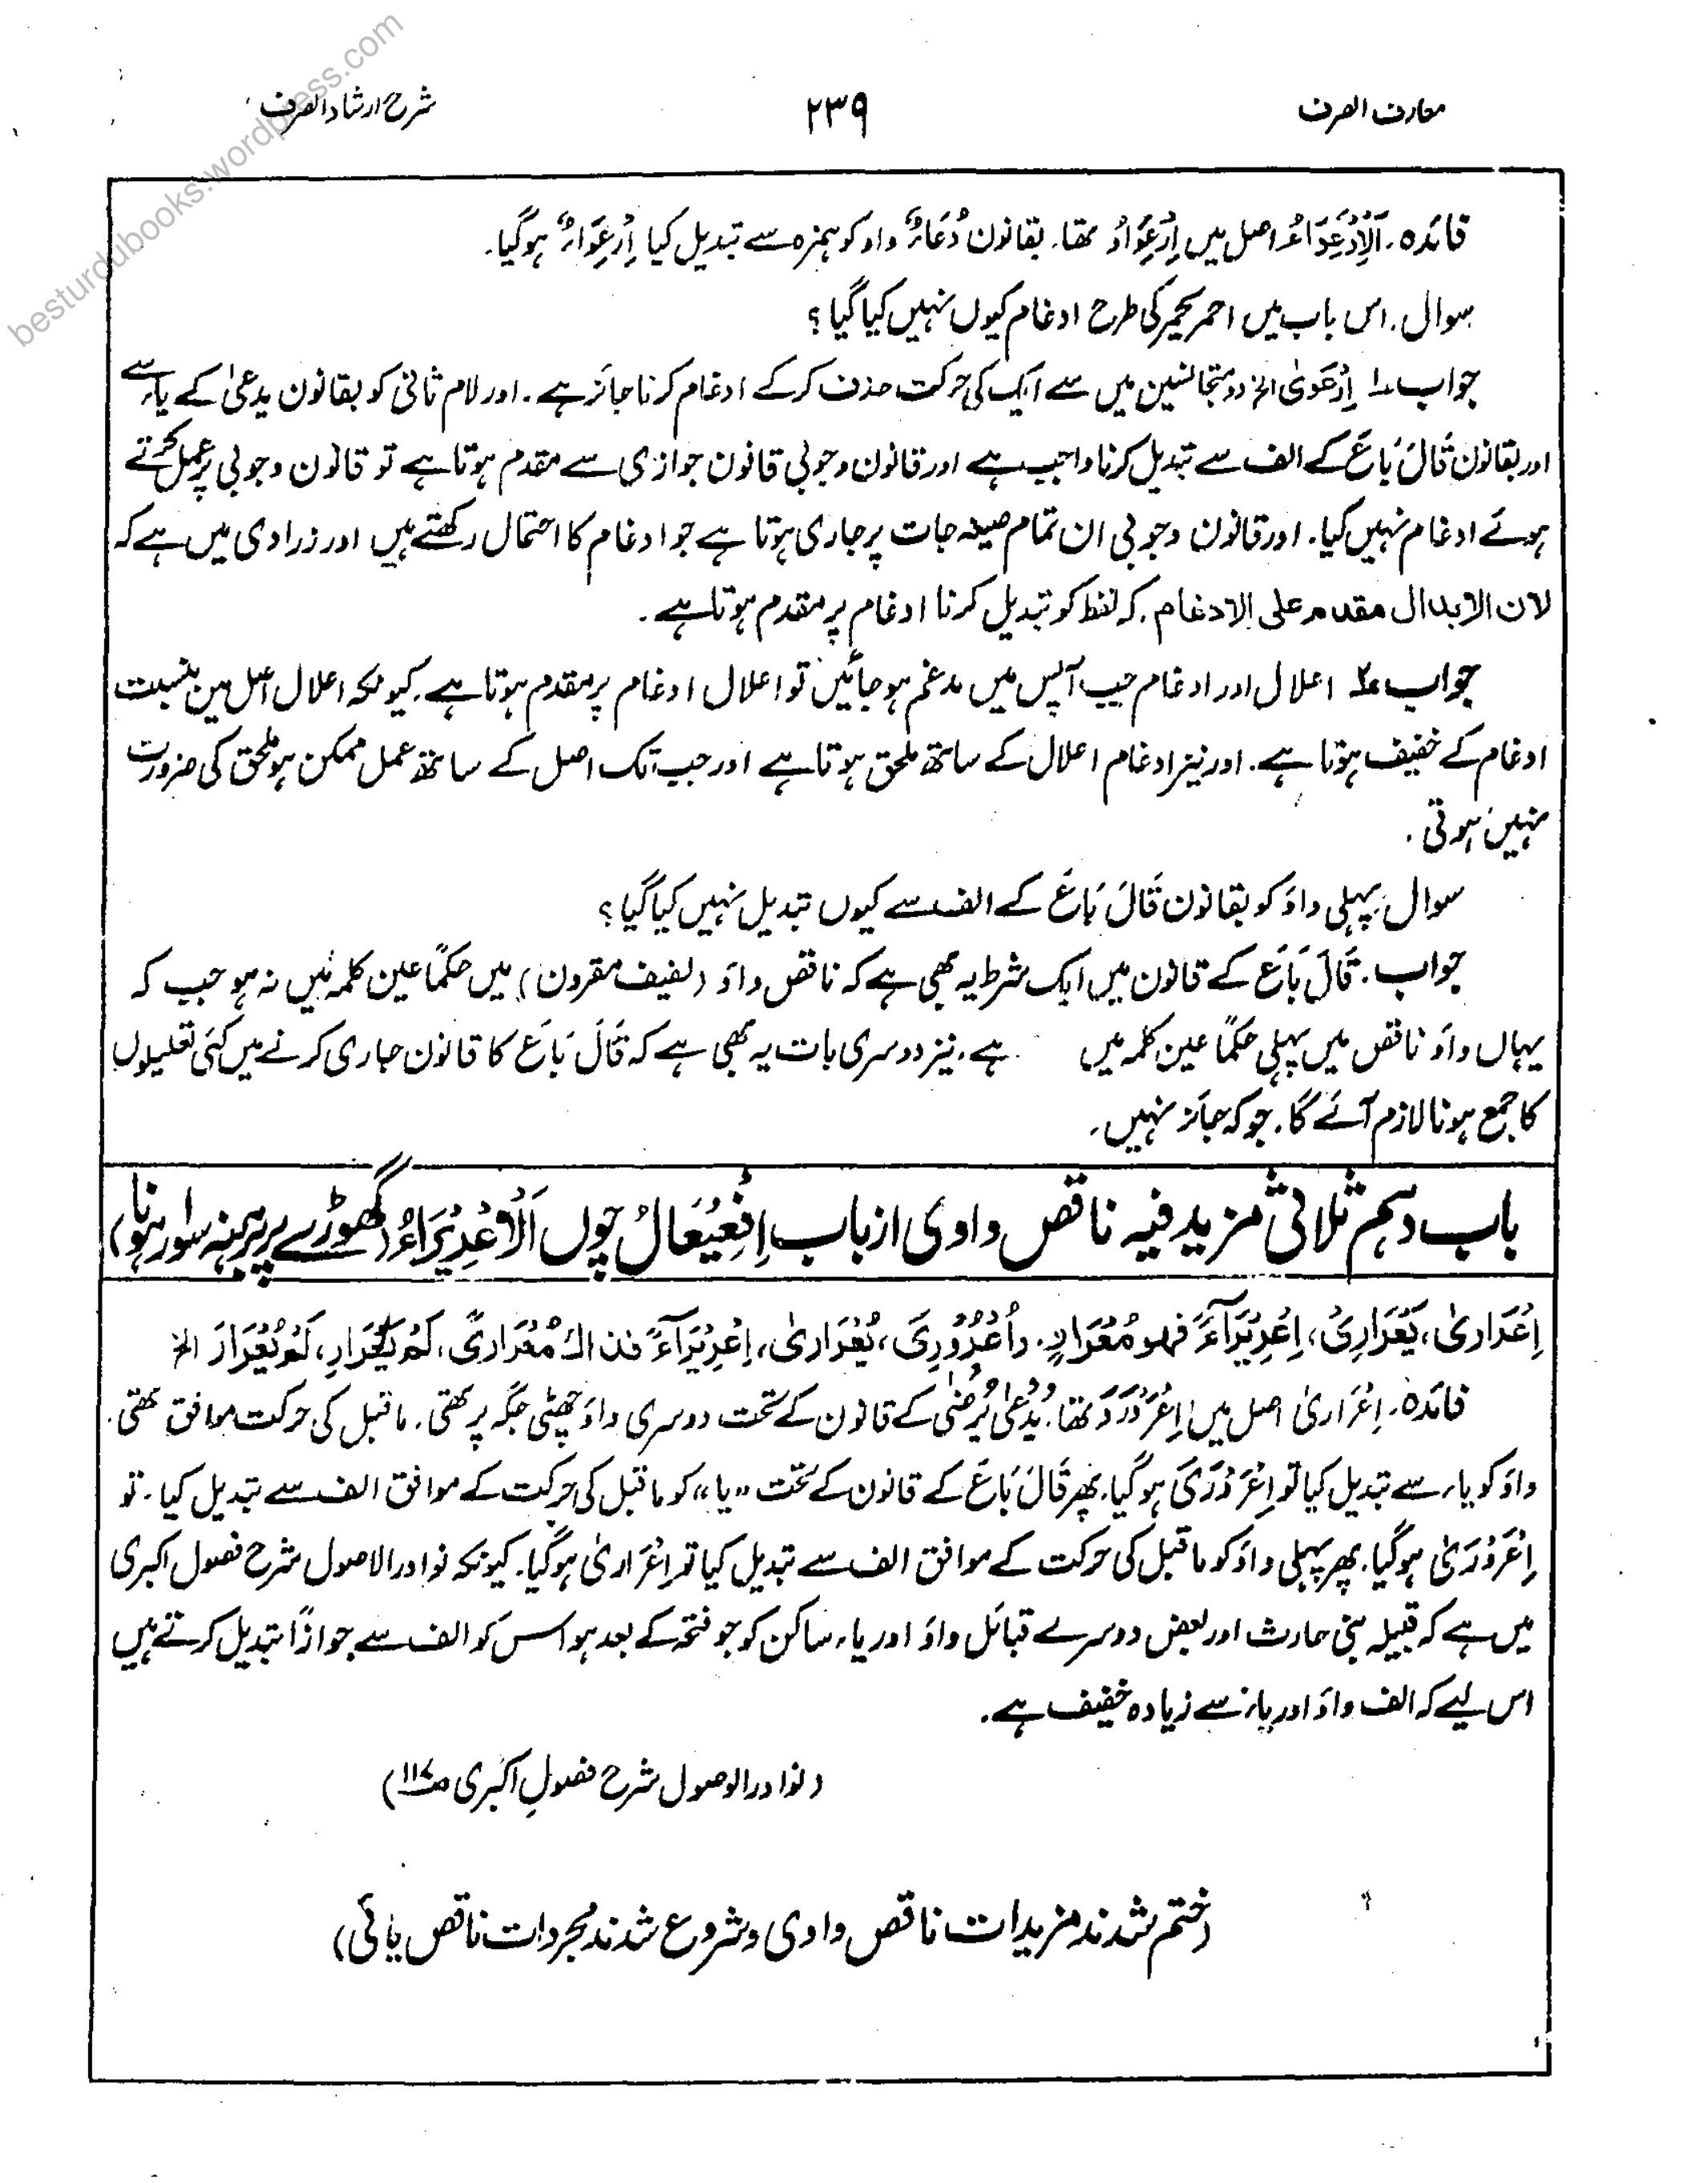 معارف الصرف
۲۳۹
شرح ارشاد الصرف
besturdubooks.wordpress.com
فائدہ۔ اَلْاِرْعِوَاءُ اصل میں اِرْعِوَاوٌ تھا۔ بقانون دُعَاءٌ واؤ کو ہمزہ سے تبدیل کیا اِرْعِوَاءٌ ہوگیا۔
سوال۔ اس باب میں احمر یحمر کی طرح ادغام کیوں نہیں کیا گیا؟
جواب ۱ اِرْعَوىٰ الخ دو متجانسین میں سے ایک کی حرکت حذف کرکے ادغام کرنا جائز ہے۔ اور لام ثانی کو بقانون یدعیٰ کے یاء سے
اور بقانون قَالَ بَاعَ کے الف سے تبدیل کرنا واجب ہے اور قانون وجوبی قانون جوازی سے مقدم ہوتا ہے تو قانون وجوبی پر عمل کرتے
ہوئے ادغام نہیں کیا۔ اور قانون وجوبی ان تمام صیغہ جات پر جاری ہوتا ہے جو ادغام کا احتمال رکھتے ہیں اور زرادی میں ہے کہ
لان الابدال مقدم علی الادغام۔ کہ لفظ کو تبدیل کرنا ادغام پر مقدم ہوتا ہے۔
جواب ۲ اعلال اور ادغام جب آپس میں مدغم ہوجائیں تو اعلال ادغام پر مقدم ہوتا ہے۔ کیونکہ اعلال اصل میں بنسبت
ادغام کے خفیف ہوتا ہے۔ اور نیز ادغام اعلال کے ساتھ ملحق ہوتا ہے اور جب تک اصل کے ساتھ عمل ممکن ہو ملحق کی ضرورت
نہیں ہوتی۔
سوال۔ پہلی واؤ کو بقانون قَالَ بَاعَ کے الف سے کیوں تبدیل نہیں کیا گیا؟
جواب۔ قَالَ بَاعَ کے قانون میں ایک شرط یہ بھی ہے کہ ناقص واؤ (لفیف مقرون) میں حکمًا عین کلمہ میں نہ ہو جب کہ
یہاں واؤ ناقص میں پہلی حکمًا عین کلمہ میں ہے۔ نیز دوسری بات یہ بھی ہے کہ قَالَ بَاعَ کا قانون جاری کرنے میں کئی تعلیلوں
کا جمع ہونا لازم آئے گا۔ جو کہ جائز نہیں۔
باب دہم ثلاثی مزید فیہ ناقص واوی از باب اِفْعِیْعَالُ چوں اَلْاِعْرِیْرَاءُ (گھوڑے پر برہنہ سوار ہونا)
اِعْرَارىٰ، یَعْرَارِیُ، اِعْرِیْرَآءً فہو مُعْرَارٍ۔ واُعْرُوْرِیَ، یُعْرَارىٰ، اِعْرِیْرَآءً فذاك مُعْرَارىً، لَمْ یَعْرَارِ، لَمْ یُعْرَارَ الخ
فائدہ۔ اِعْرَارىٰ اصل میں اِعْرَوْرَوَ تھا۔ یُدْعیٰ یُرْضیٰ کے قانون کے تحت دوسری واؤ چھٹی جگہ پر تھی۔ ماقبل کی حرکت موافق تھی۔
واؤ کو یاء سے تبدیل کیا تو اِعْرَوْرَیَ ہوگیا۔ پھر قَالَ بَاعَ کے قانون کے تحت "یا" کو ماقبل کی حرکت کے موافق الف سے تبدیل کیا۔ تو
اِعْرَوْرَىٰ ہوگیا۔ پھر پہلی واؤ کو ماقبل کی حرکت کے موافق الف سے تبدیل کیا تو اِعْرَارىٰ ہوگیا۔ کیونکہ نوادر الاصول شرح فصول اکبری
میں ہے کہ قبیلہ بنی حارث اور بعض دوسرے قبائل واؤ اور یاء ساکن کو جو فتحہ کے بعد ہو اس کو الف سے جوازًا تبدیل کرتے ہیں
اس لیے کہ الف واؤ اور یاء سے زیادہ خفیف ہے۔
(نوادر الوصول شرح فصولِ اکبری ص۱۱۷)
(ختم شدند مزیدات ناقص واوی وشروع شدند مجردات ناقص یائی)